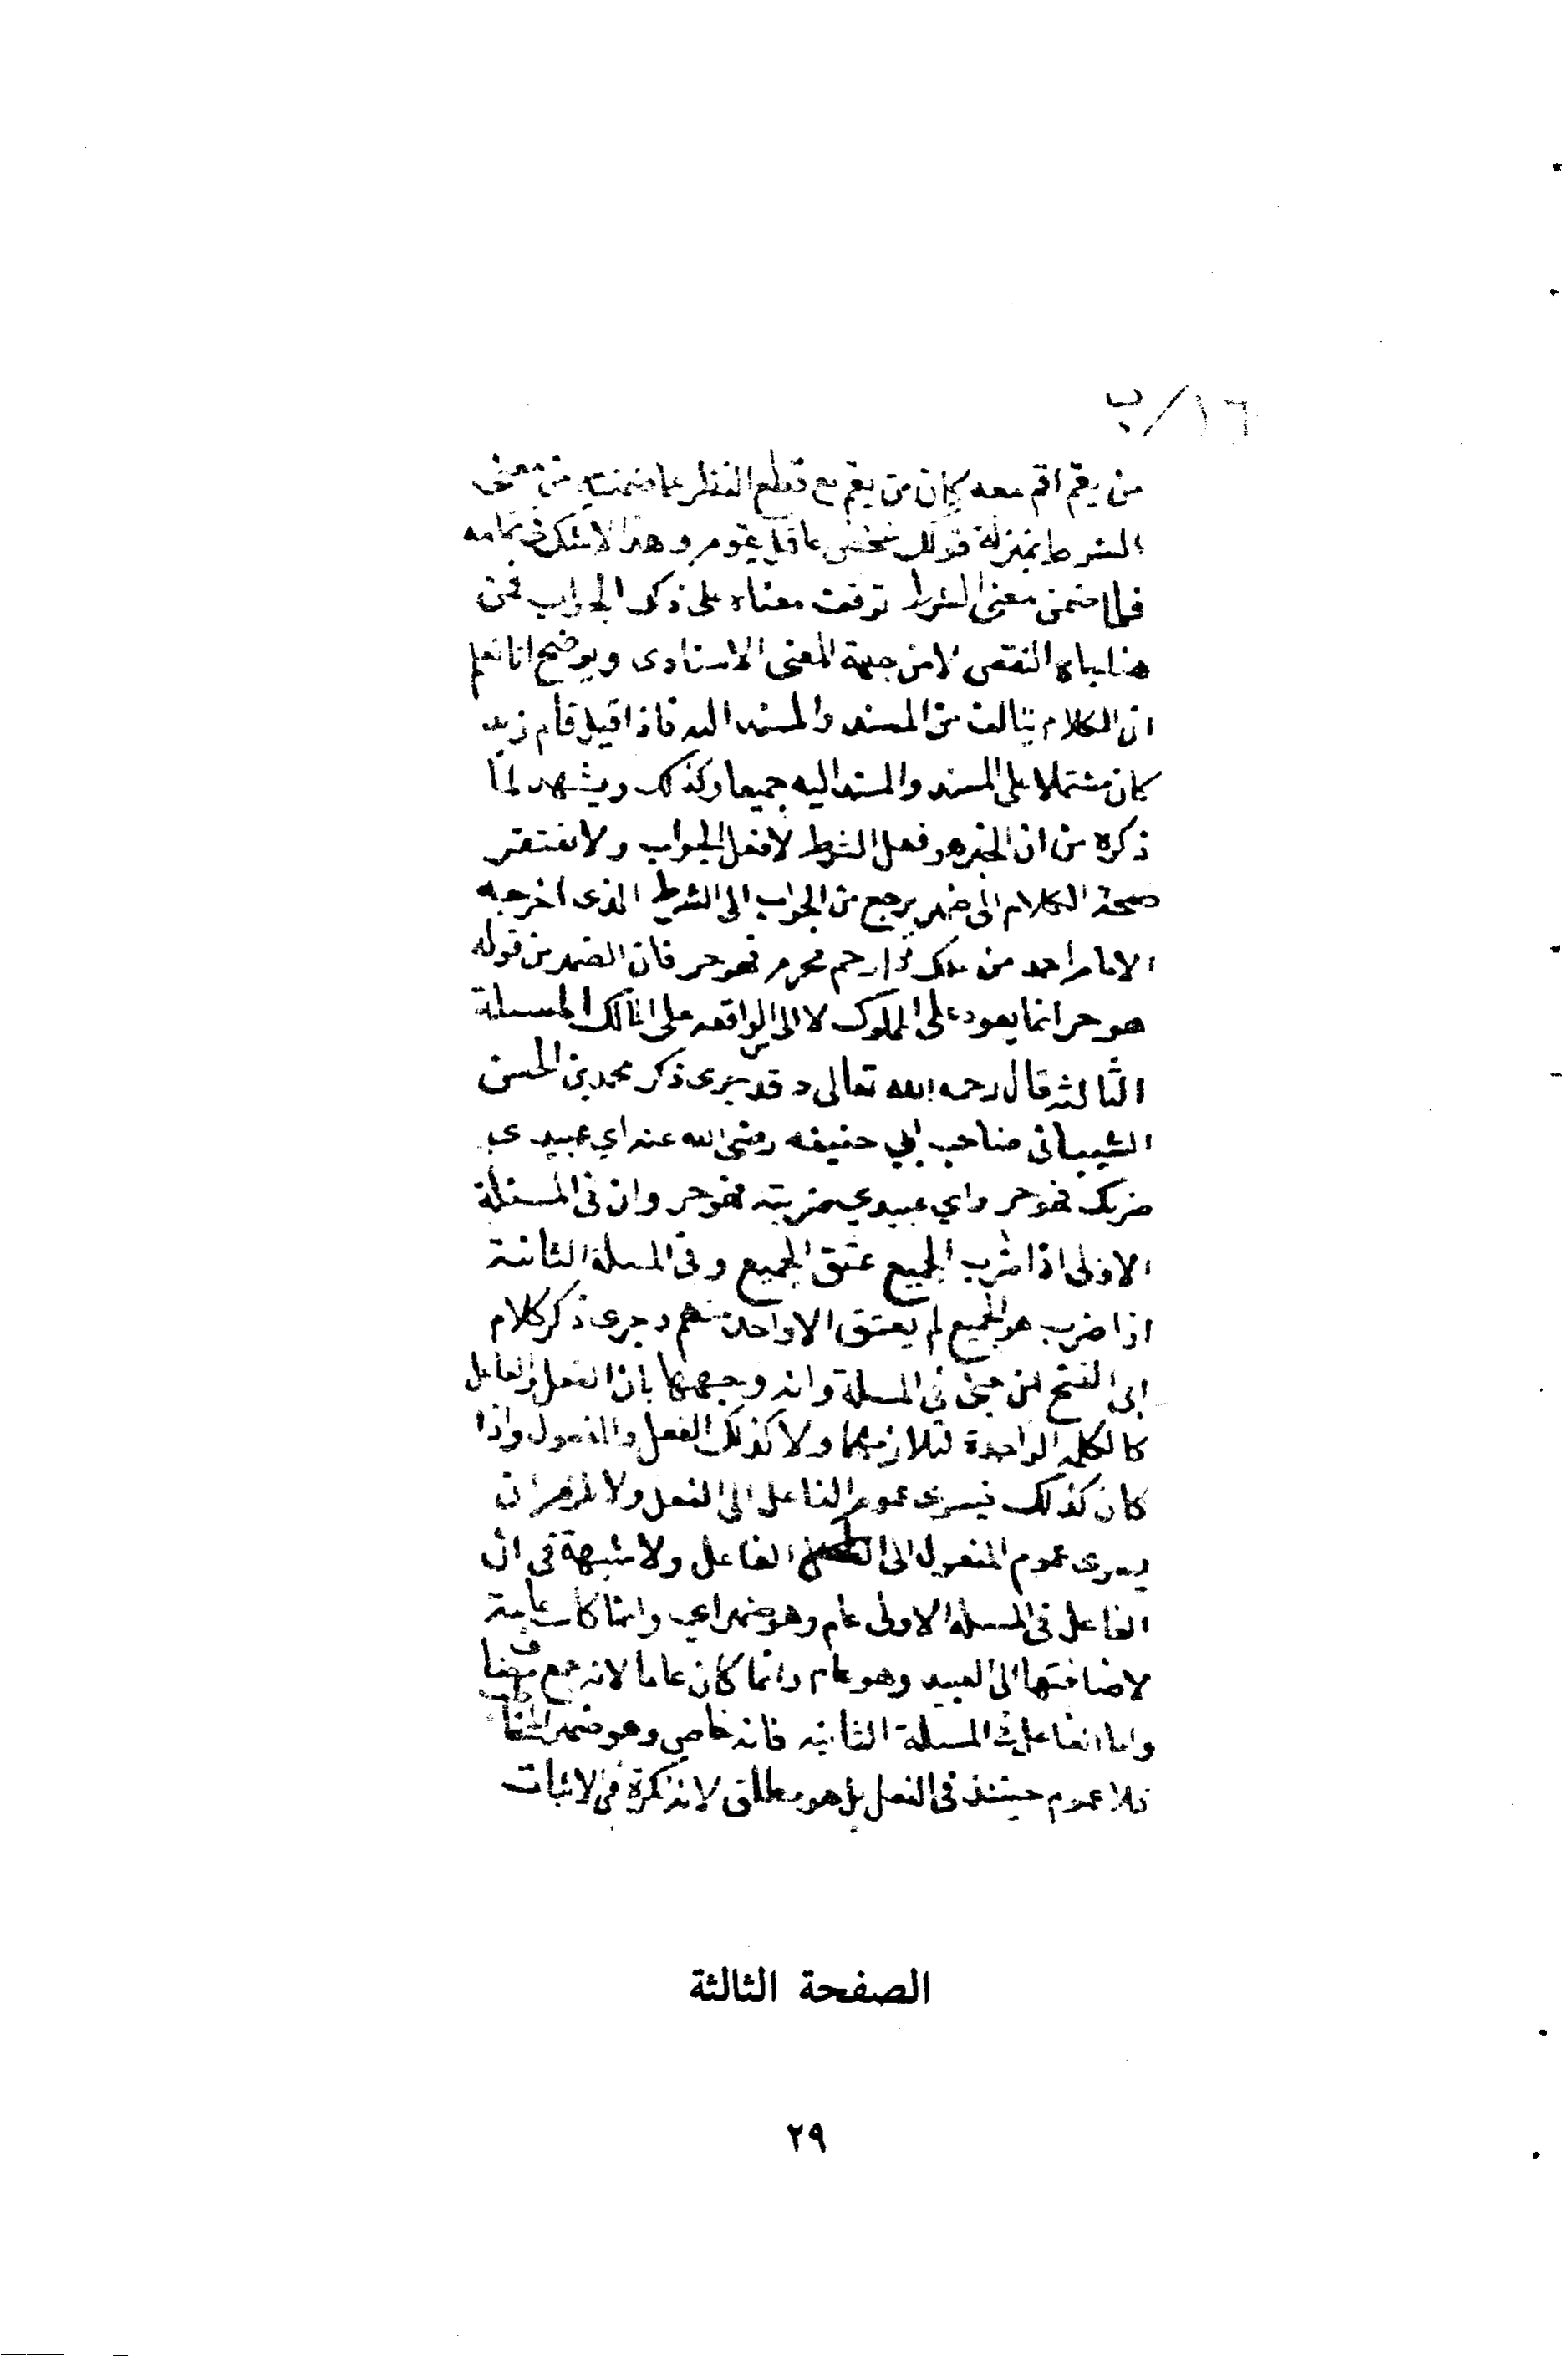 ١٦/ب
من يقم اقم معه كان من يقم مع قطع النظر عما ضمنته من معنى
الشرط بمنزلة قولك شخص عاقل يقوم وهذا لا شك في تمامه
فلما ضمن معنى الشرط توقف معناه على ذكر الجواب فمن
هنا جاء النقص لا من جهة المعنى الاسنادى ويوضح انا نعلم
ان الكلام يتالف من المسند والمسند اليه فاذا قيل قام زيد
كان مشتملا على المسند والمسند اليه جميعا وكذلك ويشهد لما
ذكره من ان الخبر هو فعل الشرط لا فعل الجواب ولا تفتقر
صحة الكلام الى ضمير يرجع من الجواب الى الشرط الذى اخرجه
الامام احمد من ملك ذا رحم محرم فهو حر فان الضمير من قوله
هو حر انما يعود على المملوك لا الى من الواقعه على المالك المسئلة
الثالثه قال رحمه الله تعالى وقد جرى ذكر محمد بن الحسن
الشيبانى صاحب ابي حنيفه رضى الله عنه اي عبيدى
ضربك فهو حر واي عبيدي ضربته فهو حر وان فى المسئلة
الاولى اذا ضرب الجميع عتق الجميع وفى المسلة الثانية
اذا ضرب هو الجميع لم يعتق الا واحد منهم وجرى ذكر كلام
ابى الفتح بن جنى فى المسلة وانه وجهها بان الفعل والفاعل
كالكلمه الواحدة لتلازمهما ولا كذلك الفعل والمفعول واذا
كان كذلك فيسرى عموم الفاعل الى الفعل ولا يلزم ان
يسرى عموم المفعول الى الفاعل ولا شبهة فى ان
الفاعل فى المسله الاولى عام وهو ضمير اي وانما كانت عامة
لاضافتها الى العبيد وهو عام وانما كان عاما لانه جمع مضاف
واما الفاعل فى المسلة الثانيه فانه خاص وهو ضمير المخاطب
فلا عموم حينئذ فى الفعل بل هو مطلق لانه نكرة فى الاثبات
الصفحة الثالثة
٢٩